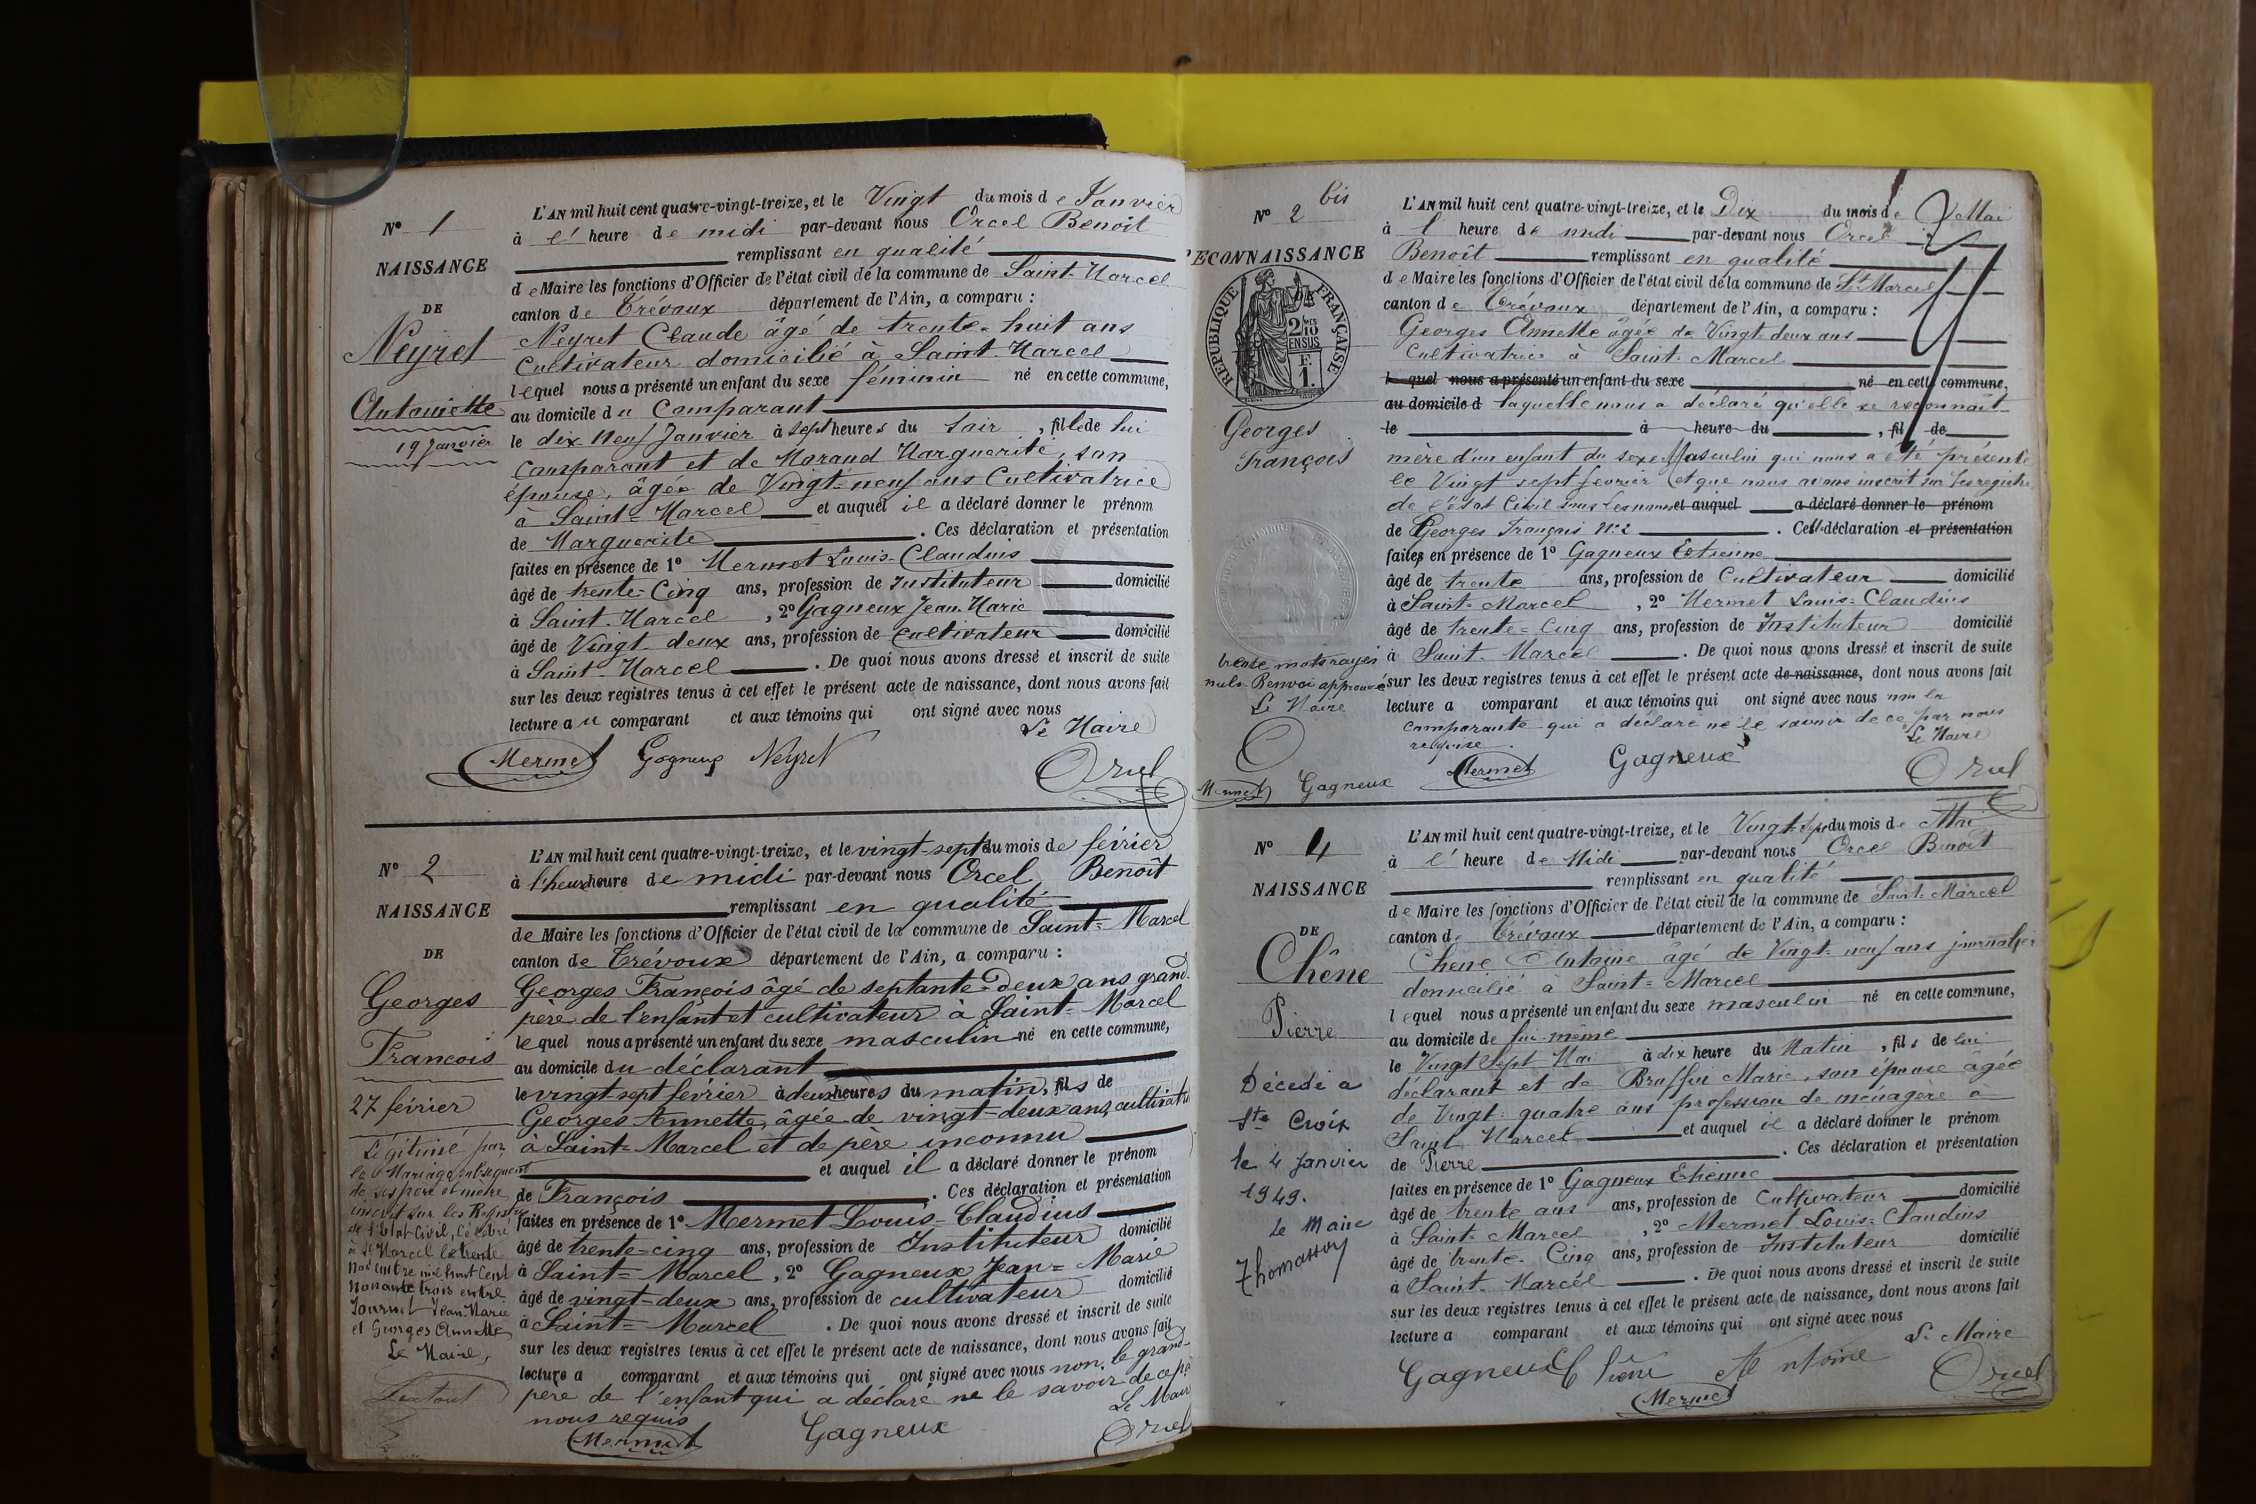 N° 1
NAISSANCE
DE
Neyret
Antoinette
19 Janvier
L'AN mil huit cent quatre-vingt-treize, et le Vingt du mois de Janvier
à l' heure de midi par-devant nous Orcel Benoît
remplissant en qualité
de Maire les fonctions d'Officier de l'état civil de la commune de Saint-Marcel
canton de Trévoux département de l'Ain, a comparu :
Neyret Claude âgé de trente-huit ans
Cultivateur domicilié à Saint-Marcel
lequel nous a présenté un enfant du sexe féminin né en cette commune,
au domicile du Comparant
le dix neuf Janvier à sept heures du soir, fille de lui
Comparant et de Morand Marguerite, son
épouse, âgée de Vingt-neuf ans Cultivatrice
à Saint-Marcel et auquel il a déclaré donner le prénom
de Marguerite. Ces déclaration et présentation
faites en présence de 1° Mermet Louis-Claudius
âgé de trente-Cinq ans, profession de Instituteur domicilié
à Saint-Marcel, 2° Gagneux Jean-Marie
âgé de Vingt-deux ans, profession de Cultivateur domicilié
à Saint-Marcel. De quoi nous avons dressé et inscrit de suite
sur les deux registres tenus à cet effet le présent acte de naissance, dont nous avons fait
lecture au comparant et aux témoins qui ont signé avec nous
Le Maire
Mermet Gagneux Neyret Orcel
N° 2
NAISSANCE
DE
Georges
François
27 février
Légitimé par
le Mariage subséquent
de ses père et mère
inscrit sur les Registres
de l'Etat Civil, célébré
à St Marcel le trente
Novembre mil huit cent
nonante trois entre
Journet Jean Marie
et Georges Annette
Le Maire,
L'AN mil huit cent quatre-vingt-treize, et le vingt-sept du mois de février
à l'heure heure de midi par-devant nous Orcel Benoît
remplissant en qualité
de Maire les fonctions d'Officier de l'état civil de la commune de Saint-Marcel
canton de Trévoux département de l'Ain, a comparu :
Georges François âgé de septante-deux ans grand-
père de l'enfant et cultivateur à Saint-Marcel
lequel nous a présenté un enfant du sexe masculin né en cette commune,
au domicile du déclarant
le vingt-sept février à deux heures du matin, fils de
Georges Annette, âgée de vingt-deux ans, cultivatr
à Saint-Marcel et de père inconnu
et auquel il a déclaré donner le prénom
de François. Ces déclaration et présentation
faites en présence de 1° Mermet Louis-Claudius
âgé de trente-cinq ans, profession de Instituteur domicilié
à Saint-Marcel, 2° Gagneux Jean-Marie
âgé de vingt-deux ans, profession de cultivateur domicilié
à Saint-Marcel. De quoi nous avons dressé et inscrit de suite
sur les deux registres tenus à cet effet le présent acte de naissance, dont nous avons fait
lecture a comparant et aux témoins qui ont signé avec nous non, le grand-
père de l'enfant qui a déclaré ne le savoir de ce par
nous requis
Le Maire
Mermet Gagneux Orcel
N° 2 bis
RECONNAISSANCE
RÉPUBLIQUE FRANÇAISE
2/10 EN SUS
F. 1.
Georges
François
treize mots rayés
nuls Renvoi approuvé
Le Maire
Mermet Gagneux
L'AN mil huit cent quatre-vingt-treize, et le Dix du mois de Mai
à l' heure de midi par-devant nous Orcel
Benoît remplissant en qualité
de Maire les fonctions d'Officier de l'état civil de la commune de St Marcel
canton de Trévoux département de l'Ain, a comparu :
Georges Annette âgée de Vingt deux ans
Cultivatrice à Saint-Marcel
lequel nous a présenté un enfant du sexe né en cette commune,
au domicile d laquelle nous a déclaré qu'elle se reconnaît
le à heure du, fil de
mère d'un enfant du sexe Masculin qui nous a été présenté
le Vingt sept février et que nous avons inscrit sur les registres
de l'état Civil sous les noms et auquel a déclaré donner le prénom
de Georges François N° 2. Cette déclaration et présentation
faites en présence de 1° Gagneux Etienne
âgé de trente ans, profession de Cultivateur domicilié
à Saint-Marcel, 2° Mermet Louis-Claudius
âgé de trente-Cinq ans, profession de Instituteur domicilié
à Saint-Marcel. De quoi nous avons dressé et inscrit de suite
sur les deux registres tenus à cet effet le présent acte de naissance, dont nous avons fait
lecture a comparant et aux témoins qui ont signé avec nous non la
comparante qui a déclaré ne le savoir de ce par nous
requise.
Le Maire
Mermet Gagneux Orcel
N° 4
NAISSANCE
DE
Chêne
Pierre
Décédé à
Ste Croix
le 4 Janvier
1949.
Le Maire
Thomasson
L'AN mil huit cent quatre-vingt-treize, et le Vingt-sept du mois de Mai
à l' heure de Midi par-devant nous Orcel Benoît
remplissant en qualité
de Maire les fonctions d'Officier de l'état civil de la commune de Saint-Marcel
canton de Trévoux département de l'Ain, a comparu :
Chêne Antoine âgé de Vingt-neuf ans journalier
domicilié à Saint-Marcel
lequel nous a présenté un enfant du sexe masculin né en cette commune,
au domicile de lui-même
le Vingt Sept Mai à dix heure du Matin, fils de lui
déclarant et de Marie, son épouse âgée
de Vingt-quatre ans profession de ménagère à
Saint Marcel et auquel il a déclaré donner le prénom
de Pierre. Ces déclaration et présentation
faites en présence de 1° Gagneux Etienne
âgé de trente ans ans, profession de Cultivateur domicilié
à Saint-Marcel, 2° Mermet Louis-Claudius
âgé de trente-Cinq ans, profession de Instituteur domicilié
à Saint-Marcel. De quoi nous avons dressé et inscrit de suite
sur les deux registres tenus à cet effet le présent acte de naissance, dont nous avons fait
lecture a comparant et aux témoins qui ont signé avec nous
Le Maire
Gagneux Chêne Antoine Orcel
Mermet